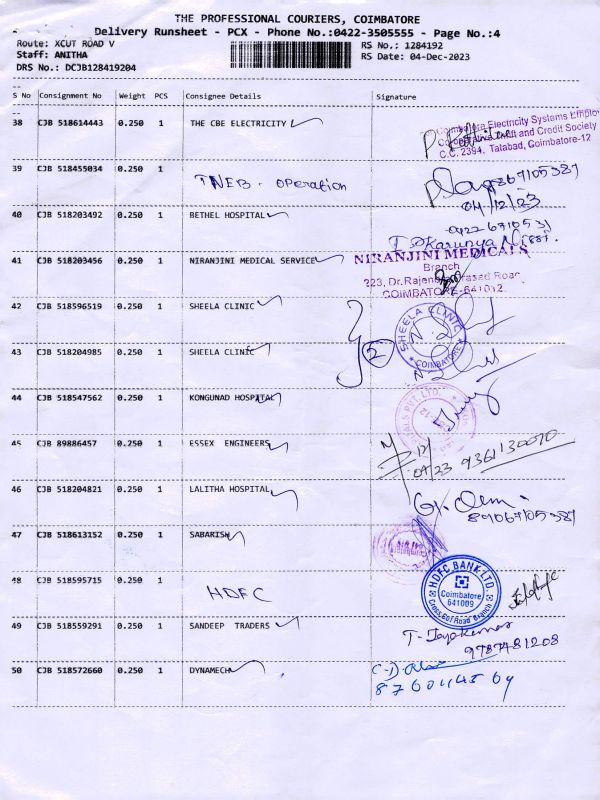 THE PROFESSIONAL COURIERS, COIMBATORE
Delivery Runsheet - PCX - Phone No.:0422-3505555 - Page No.:4
Route: XCUT ROAD V
RS No.: 1284192
Staff: ANITHA
RS Date: 04-Dec-2023
DRS No.: DCJB128419204
S No Consignment No Weight PCS Consignee Details Signature
38 CJB 518614443 0.250 1 THE CBE ELECTRICITY
Coimbatore Electricity Systems Employ
Co-operative Thrift and Credit Society
C.C. 2394, Tatabad, Coimbatore-12
39 CJB 518455034 0.250 1 TNEB - Operation
04/12/23
40 CJB 518203492 0.250 1 BETHEL HOSPITAL
41 CJB 518203456 0.250 1 NIRANJINI MEDICAL SERVICE
NIRANJINI MEDICALS
Branch
223, Dr.Rajendra Prasad Road,
COIMBATORE-641012.
42 CJB 518596519 0.250 1 SHEELA CLINIC
SHEELA CLINIC
COIMBATORE
2
43 CJB 518204985 0.250 1 SHEELA CLINIC
44 CJB 518547562 0.250 1 KONGUNAD HOSPITAL
45 CJB 89886457 0.250 1 ESSEX ENGINEERS
9361130070
46 CJB 518204821 0.250 1 LALITHA HOSPITAL
8906705387
47 CJB 518613152 0.250 1 SABARISH
48 CJB 518595715 0.250 1 HDFC
HDFC BANK LTD
Coimbatore
641009
Cross Cut Road Branch
49 CJB 518559291 0.250 1 SANDEEP TRADERS
T. Jayakumar
9787481208
50 CJB 518572660 0.250 1 DYNAMECH